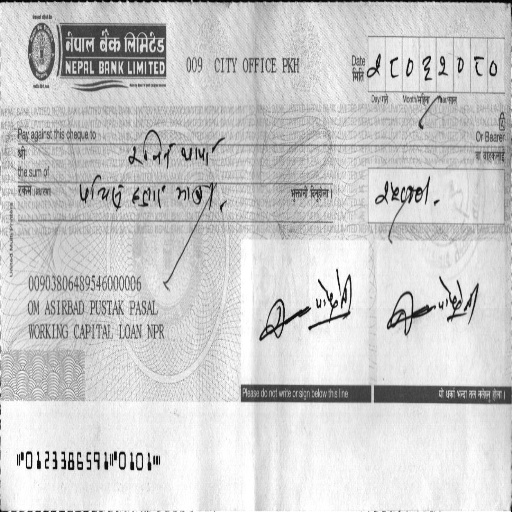 नेपाल बैंक लिमिटेड
NEPAL BANK LIMITED
009 CITY OFFICE PKH
Date
मिति
२८०३२०८०
Day/गते Month/महिना Year/साल
Pay against this cheque to
Or Bearer
श्री
वा वाहकलाई
the sum of
रकम
पच्चिस हजार मात्र
भुक्तानी दिनुहोला ।
00903806489546000006
OM ASIRBAD PUSTAK PASAL
WORKING CAPITAL LOAN NPR
Please do not write or sign below this line
यो धर्का भन्दा तल नलेख्नु होला ।
⑈0123386591⑈0101⑈